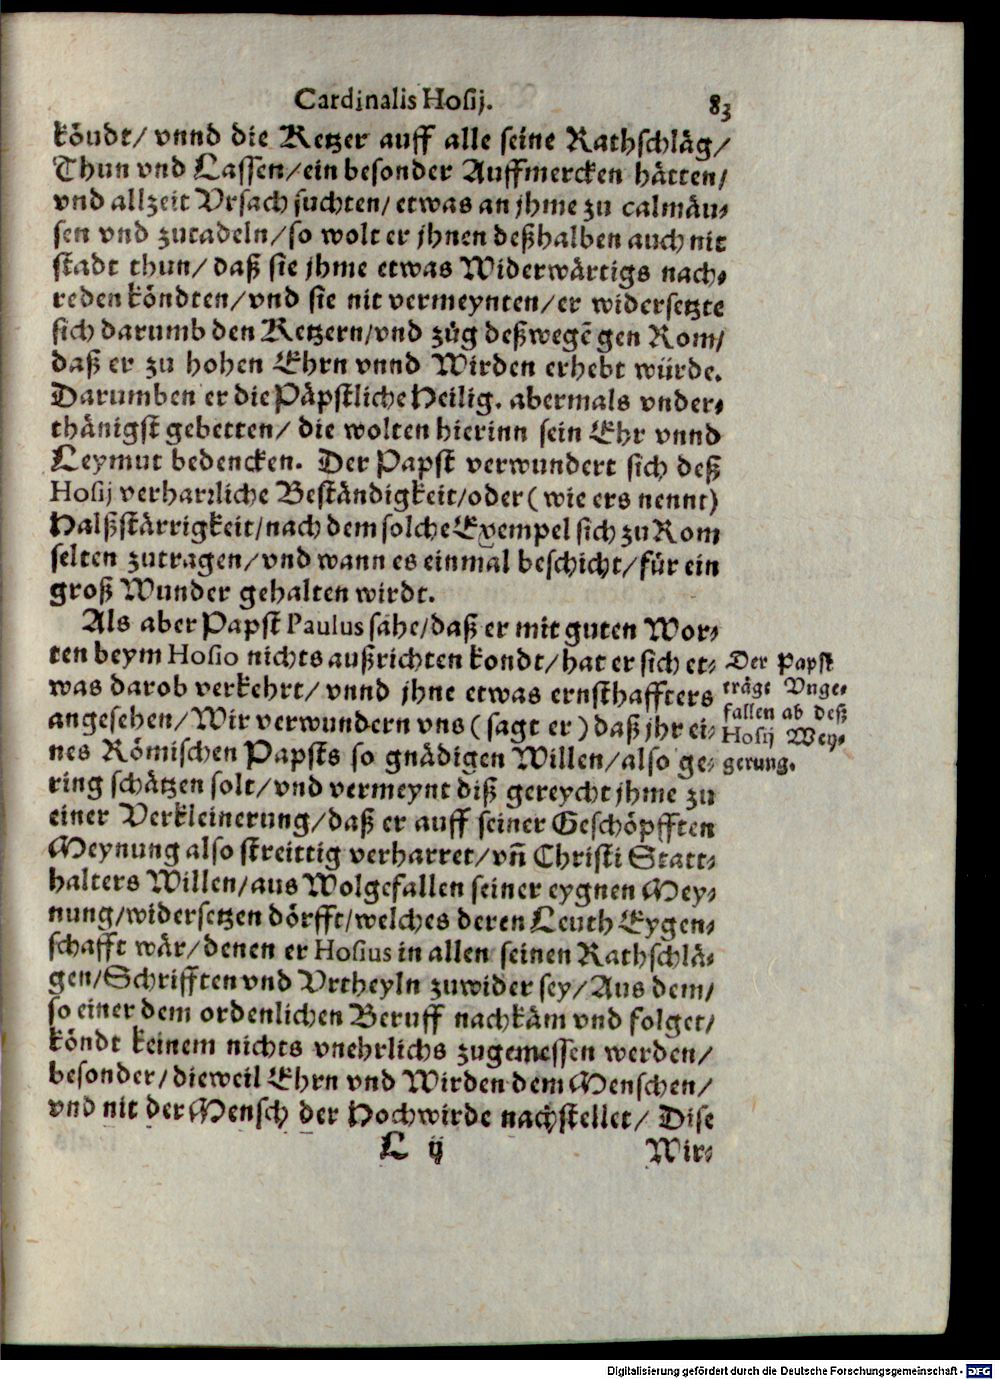 Cardinalis Hosij. 83
köudt/ vnnd die Ketzer auff alle seine Rathschläg/
Thun vnd Lassen/ein besonder Auffmercken hätten/
vnd allzeit Vrsach suchten/ etwas an jhme zu calmäu⸗
sen vnd zutadeln/so wolt er jhnen deßhalben auch nit
stadt thun/ daß sie jhme etwas Widerwärtigs nach⸗
reden köndten/vnd sie nit vermeynten/er widersetzte
sich darumb den Ketzern/vnd züg deßwegē gen Rom/
daß er zu hohen Ehrn vnnd Wirden erhebt würde.
Darumben er die Päpstliche Heilig. abermals vnder⸗
thänigst gebetten/ die wolten hierinn sein Ehr vnnd
Leymut bedencken. Der Papst verwundert sich deß
Hosij verharꝛliche Beständigkeit/oder (wie ers nennt)
Halßstärrigkeit/nach dem solche Exempel sich zu Rom
selten zutragen/vnd wann es einmal beschicht/für ein
groß Wunder gehalten wirdt.
Als aber Papst Paulus sahe/daß er mit guten Wor⸗
ten beym Hosio nichts außrichten kondt/hat er sich et⸗
was darob verkehrt/ vnnd jhne etwas ernsthaffters
angesehen/Wir verwundern vns (sagt er) daß jhr ei⸗
nes Römischen Papsts so gnädigen Willen/also ge⸗
ring schätzen solt/vnd vermeynt diß gereycht jhme zu
einer Verkleinerung/daß er auff seiner Geschöpfften
Meynung also streittig verharret/vñ Christi Statt⸗
halters Willen/aus Wolgefallen seiner eygnen Mey⸗
nung/widersetzen dörfft/welches deren Leuth Eygen⸗
schafft wär/denen er Hosius in allen seinen Rathschlä⸗
gen/Schrifften vnd Vrtheyln zuwider sey/Aus dem/
so einer dem ordenlichen Beruff nachkäm vnd folget/
köndt keinem nichts vnehrlichs zugemessen werden/
besonder/dieweil Ehrn vnd Wirden dem Menschen/
vnd nit der Mensch der Hochwirde nachstellet/ Dise
L ij Wir⸗
Der Papst
träge Vnge⸗
fallen ab deß
Hosij Wey⸗
gerung.
Digitalisierung gefördert durch die Deutsche Forschungsgemeinschaft - DFG